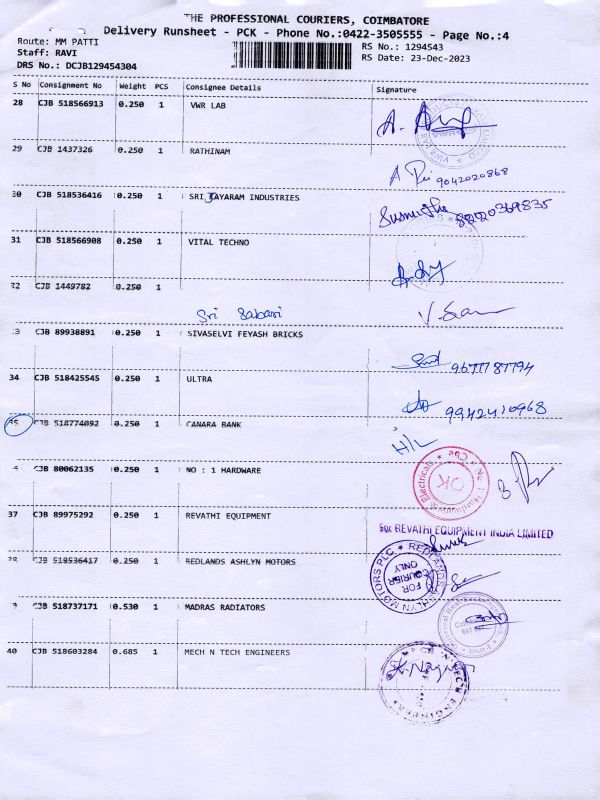 THE PROFESSIONAL COURIERS, COIMBATORE
Delivery Runsheet - PCK - Phone No.:0422-3505555 - Page No.:4
Route: MM PATTI
RS No.: 1294543
Staff: RAVI
RS Date: 23-Dec-2023
DRS No.: DCJB129454304
S No Consignment No Weight PCS Consignee Details Signature
28 CJB 518566913 0.250 1 VWR LAB
29 CJB 1437326 0.250 1 RATHINAM
9042020868
30 CJB 518536416 0.250 1 SRI JAYARAM INDUSTRIES
31 CJB 518566908 0.250 1 VITAL TECHNO
32 CJB 1449782 0.250 1
Sri Sabari
33 CJB 89938891 0.250 1 SIVASELVI FEYASH BRICKS
9677787794
34 CJB 518425545 0.250 1 ULTRA
9942410968
35 CJB 518774092 0.250 1 CANARA BANK
H/L
CJB 80062135 0.250 1 NO : 1 HARDWARE
OK
37 CJB 89975292 0.250 1 REVATHI EQUIPMENT
For REVATHI EQUIPMENT INDIA LIMITED
38 CJB 518536417 0.250 1 REDLANDS ASHLYN MOTORS
REDLANDS ASHLYN MOTORS PLC
FOR
COURIER
ONLY
9 CJB 518737171 0.530 1 MADRAS RADIATORS
40 CJB 518603284 0.685 1 MECH N TECH ENGINEERS